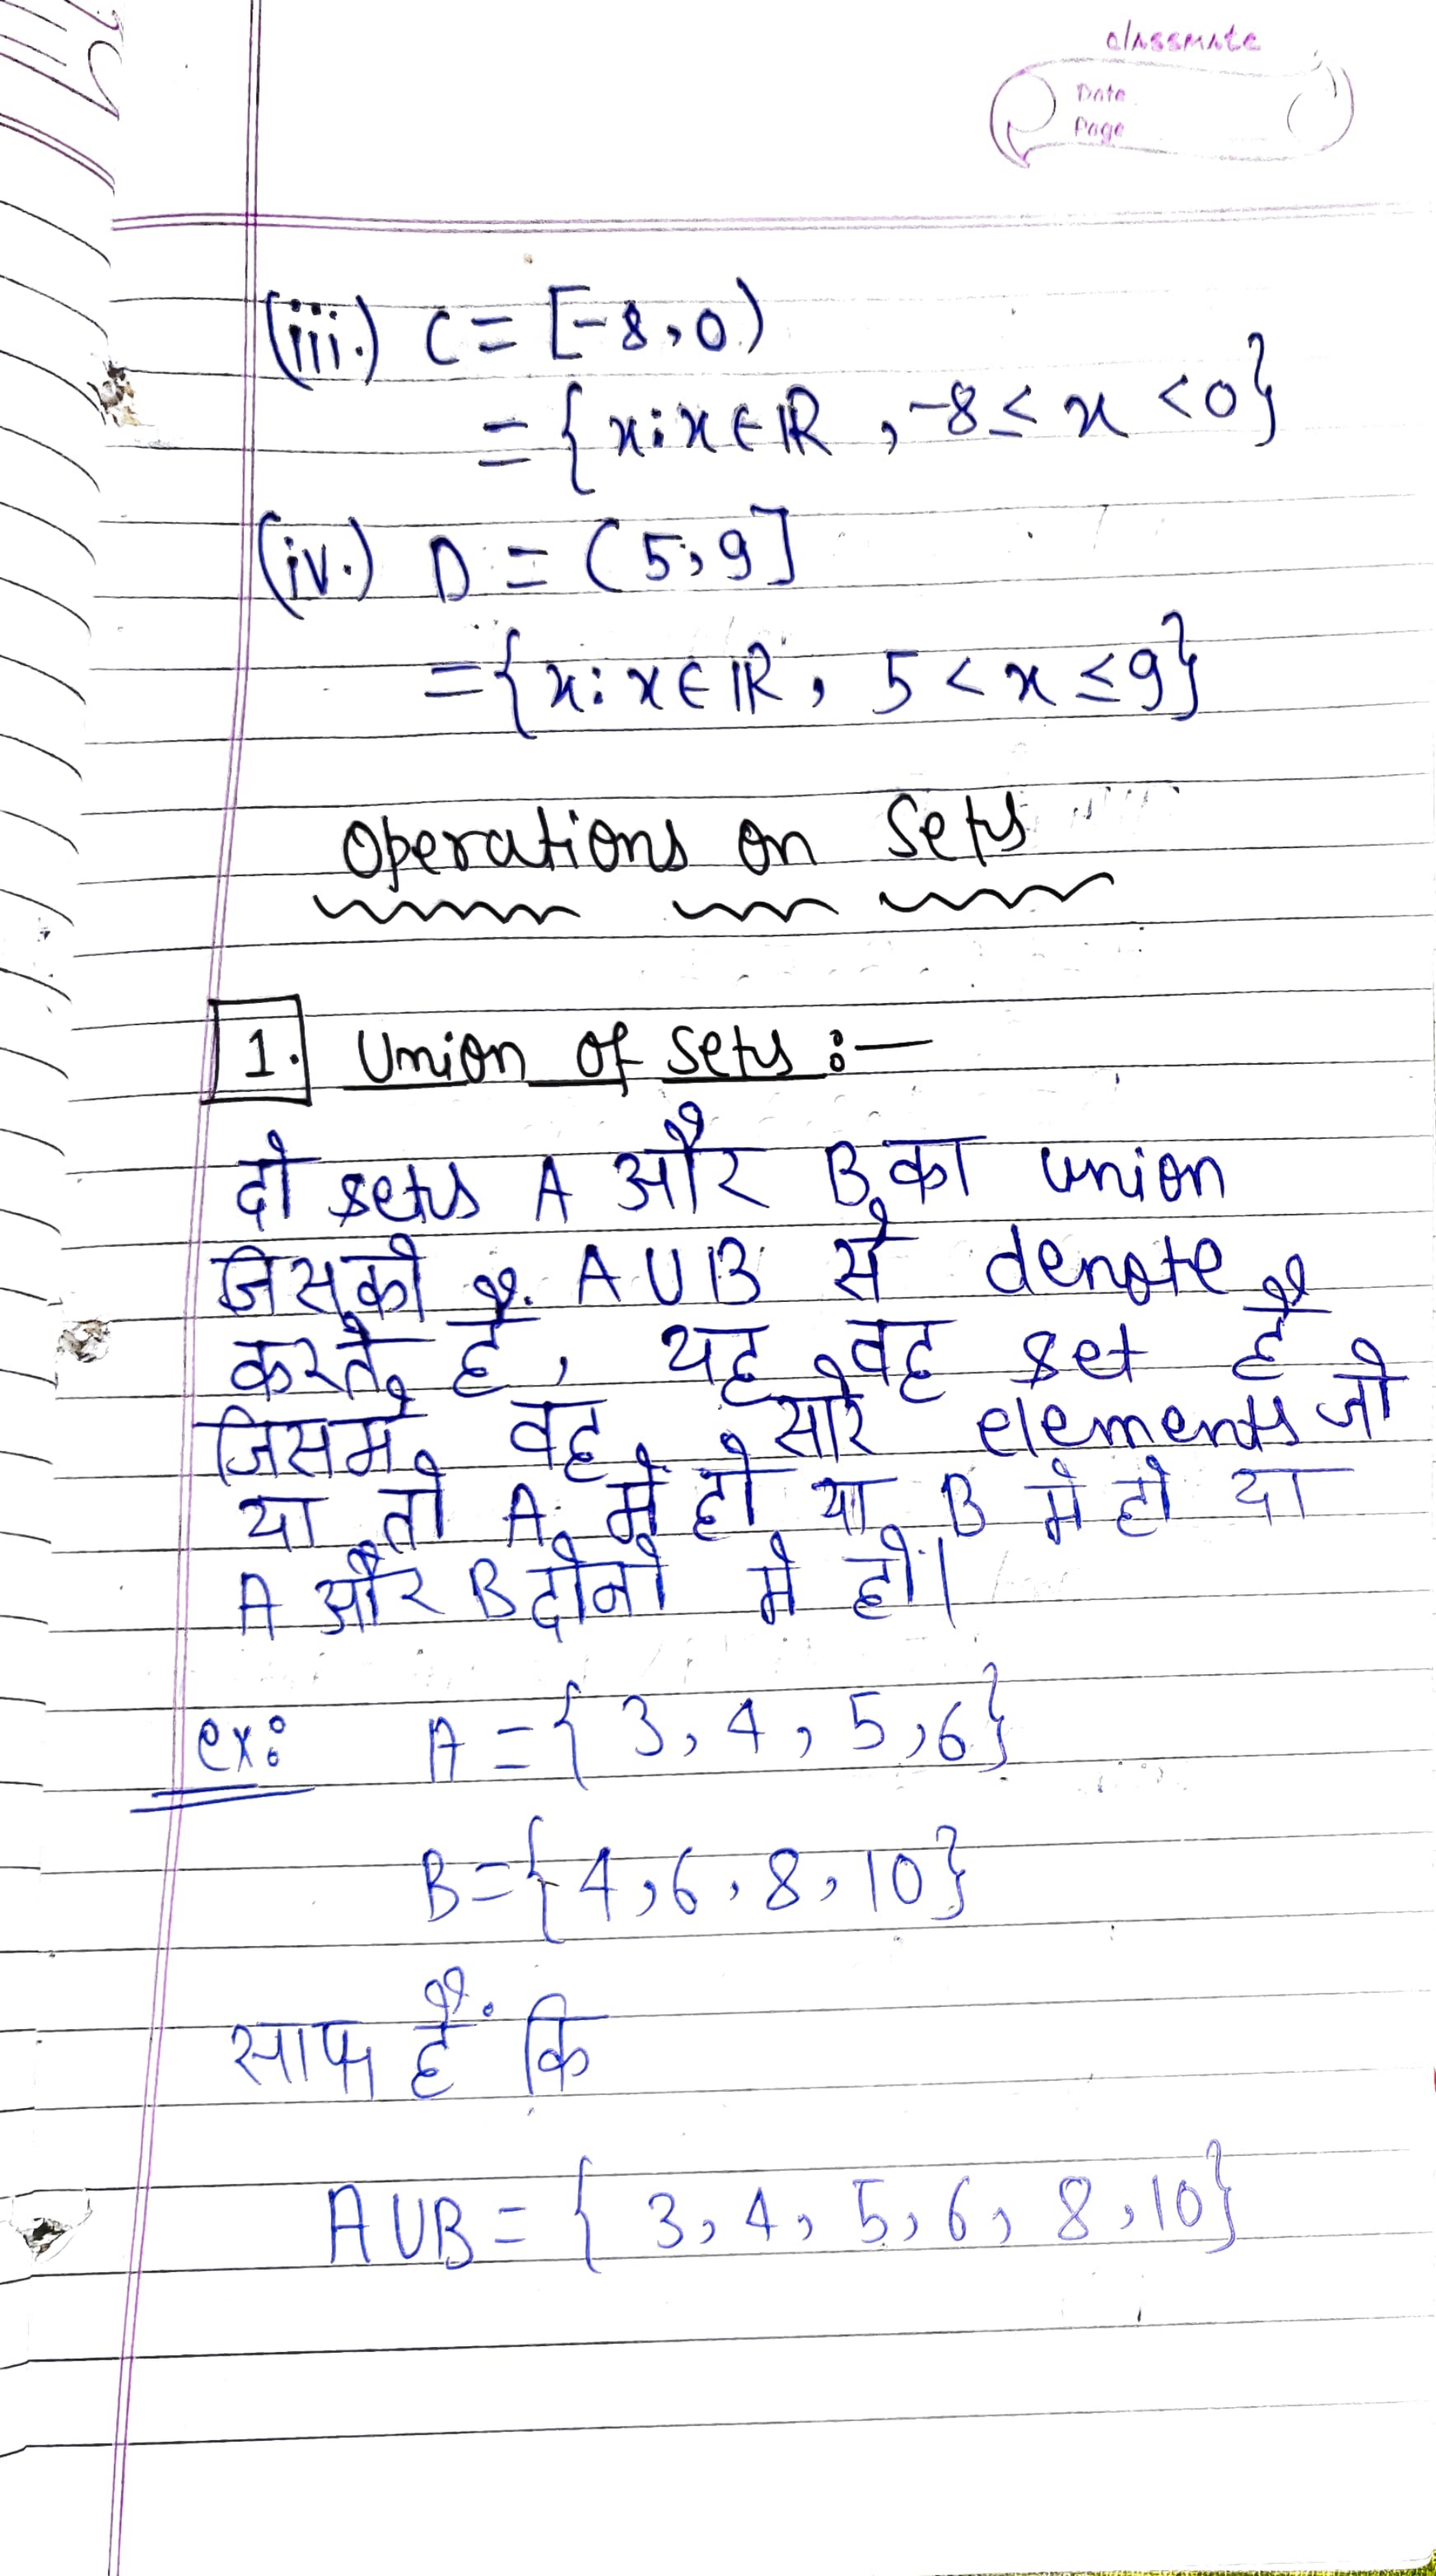 classmate
Date
Page
(iii.) C = [-8,0)
= {x:x∈ℝ , -8≤ x <0}
(iv.) D = (5,9]
= {x:x∈ℝ, 5 < x ≤9}
Operations on Sets
1. Union of sets :—
दो sets A और B का union
जिसको A∪B से denote
करते है, यह वह set है
जिसमे वह सारे elements जो
या तो A में हो या B मे हो या
A और B दोनो मे हो।
ex: A = { 3, 4, 5, 6}
B = { 4, 6, 8, 10}
साफ है कि
A∪B = { 3, 4, 5, 6, 8, 10}